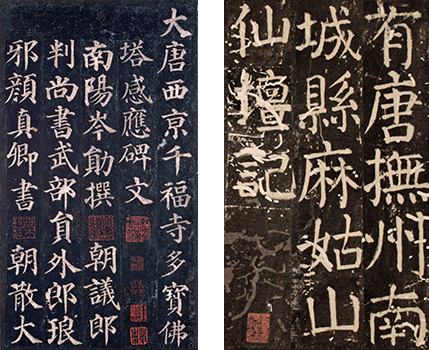 大唐西京千福寺多寶佛
塔感應碑文
南陽岑勛撰　朝議郎
判尚書武部員外郎琅
邪顏真卿書　朝散大
有唐撫州南
城縣麻姑山
仙壇記